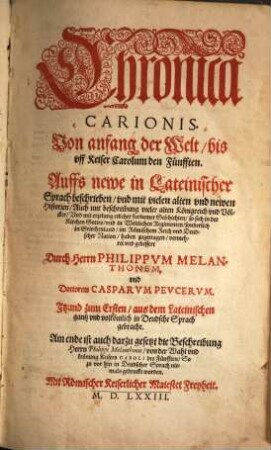 Chronica
CARIONIS.
Von anfang der Welt / bis
vff Keiser Carolum den Fünfften.
Auffs newe in Lateinischer
Sprach beschrieben / vnd mit vielen alten vnd newen
Historien / Auch mit beschreibung vieler alten Königreich vnd Völ-
cker / Vnd mit erzelung etlicher furnemer Geschichten / so sich in der
Kirchen Gottes / vnd in Weltlichen Regimenten / sonderlich
in Griechenland / im Römischen Reich vnd Deud-
scher Nation / haben zugetragen / vermeh-
ret vnd gebessert
Durch Herrn PHILIPPVM MELAN-
THONEM,
vnd
Doctorem CASPARVM PEVCERVM.
Itzund zum Ersten / aus dem Lateinischen
gantz vnd volkömlich in Deudsche Sprach
gebracht.
Am ende ist auch darzu gesetzt die Beschreibung
Herrn Philippi Melanthonis / von der Wahl vnd
krönung Keisers CAROLI des Fünfften / So
zu vor hin in Deudscher Sprach nie-
mals gedruckt worden.
Mit Römischer Keiserlicher Maiestet Freyheit.
M. D. LXXIII.